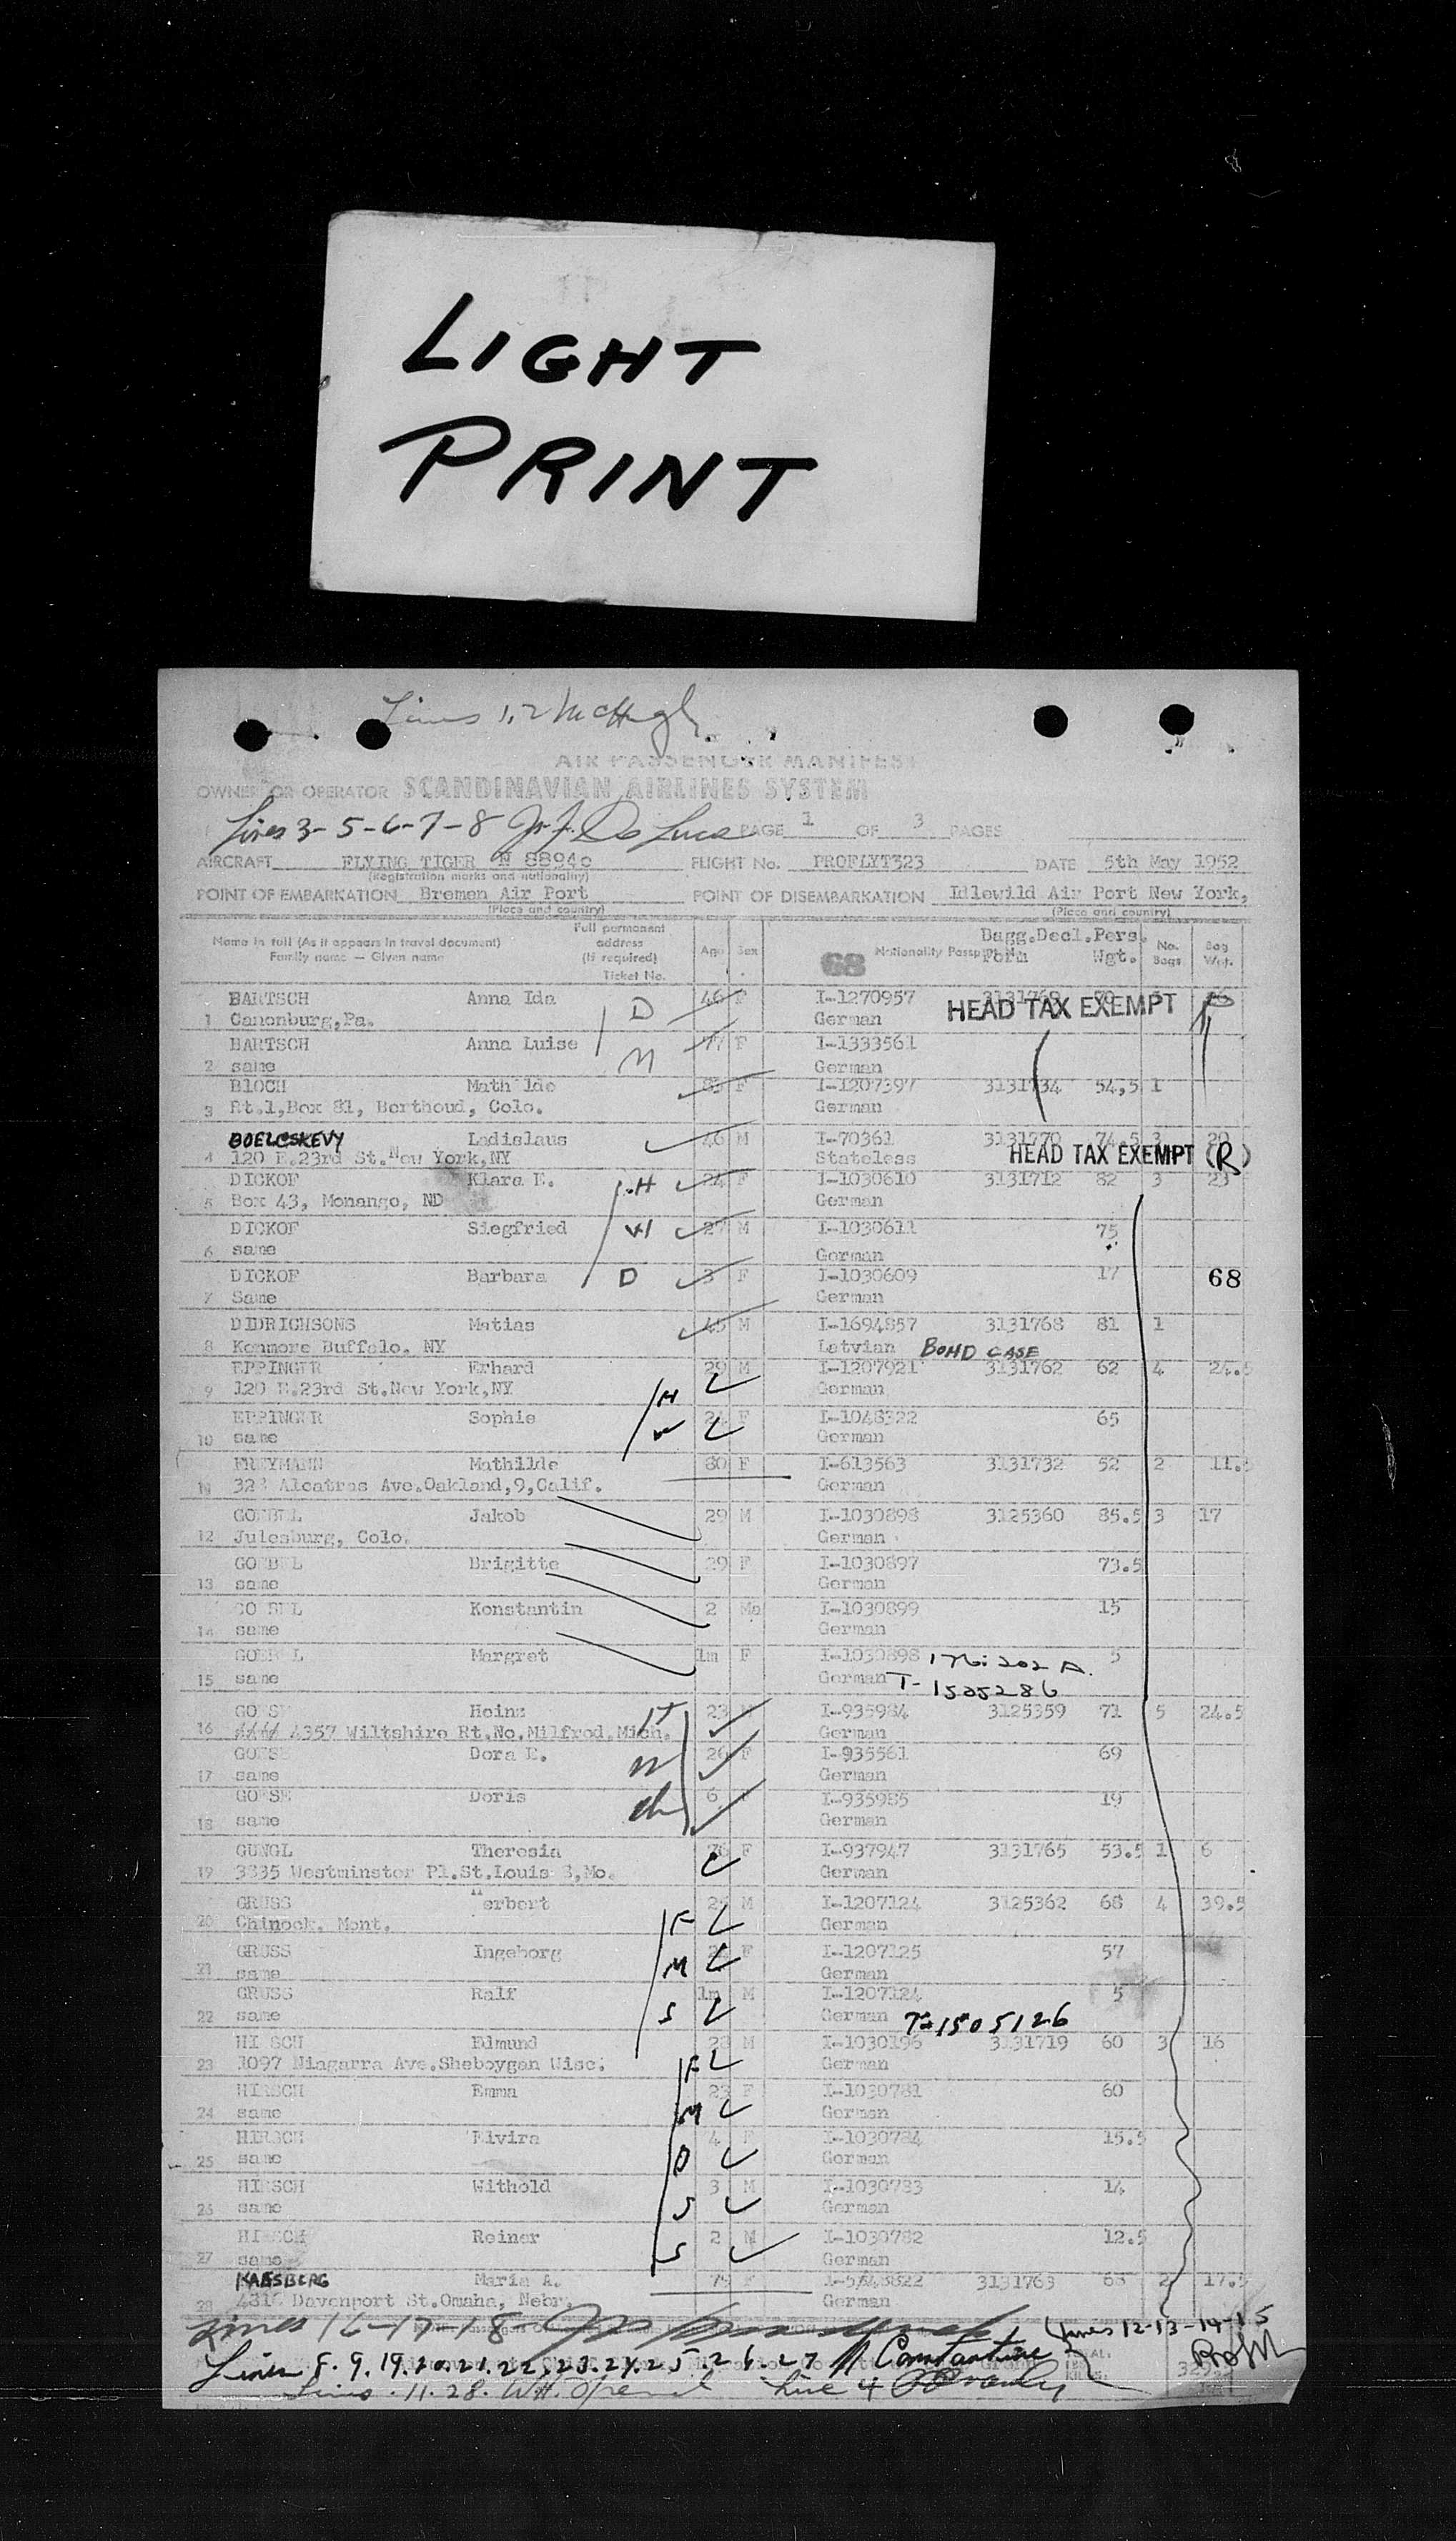 LIGHT
PRINT
Lines 1,2 McHugh
AIR PASSENGER MANIFEST
OWNER OR OPERATOR SCANDINAVIAN AIRLINES SYSTEM
Lines 3-5-6-7-8 De Luca PAGE 1 OF 3 PAGES
AIRCRAFT FLYING TIGER N 8894c FLIGHT No. PROFLYT323 DATE 5th May 1952
(Registration marks and nationality)
POINT OF EMBARKATION Bremen Air Port POINT OF DISEMBARKATION Idlewild Air Port New York,
(Place and country) (Place and country)
Name in full (As it appears in travel document) Full permanent address (if required) Age Sex 68 Nationality Bagg.Decl. Form Pers. Wgt. No. Bags Bag Wgt.
Family name — Given name Ticket No.
BARTSCH Anna Ida D 46 F I-1270957 HEAD TAX EXEMPT
1 Canonburg,Pa. German
BARTSCH Anna Luise M 77 F I-1333561
2 same German
BLOCH Mathilde 83 F I-1207397 3131734 54,5 1
3 Rt.1,Box 81, Berthoud, Colo. German
BOELCSKEVY Ladislaus 46 M I-70361 3131770 74.5 3 20
4 120 E.23rd St.New York,NY Stateless HEAD TAX EXEMPT (R)
DICKOF Klara E. H 24 F I-1030610 3131712 82 3 23
5 Box 43, Monango, ND German
DICKOF Siegfried W 27 M I-1030611 75
6 same German
DICKOF Barbara D 3 F I-1030609 17 68
7 Same German
DIDRICHSONS Matias 45 M I-1694857 3131768 81 1
8 Kenmore Buffalo. NY Latvian BOND CASE
EPPINGER Erhard 29 M I-1207921 3131762 62 4 24.5
9 120 E.23rd St.New York,NY H German
EPPINGER Sophie 24 F I-1048322 65
10 same W German
FREYMANN Mathilde 80 F I-613563 3131732 52 2 11.5
11 Alcatras Ave.Oakland,9,Calif. German
GOEBEL Jakob 29 M I-1030898 3125360 85.5 3 17
12 Julesburg, Colo. German
GOEBEL Brigitte 29 F I-1030897 73.5
13 same German
GOEBEL Konstantin 2 Ma I-1030899 15
14 same German
GOEBEL Margret 1m F I-1030898 5
15 same German T-1505286
GOESE Heinz 23 M I-935984 3125359 71 5 24.5
16 4357 Wiltshire Rt.No.Milfrod.Mich. German
GOESE Dora E. 26 F I-935561 69
17 same German
GOESE Doris ch 6 F I-935985 19
18 same German
GUNGL Theresia 76 F I-937947 3131765 53.5 1 6
19 3835 Westminster Pl.St.Louis 8,Mo. German
GRUSS Herbert 26 M I-1207124 3125362 68 4 39.5
20 Chinook. Mont. F German
GRUSS Ingeborg F I-1207125 57
21 same M German
GRUSS Ralf 1m M I-1207124 5
22 same S German T-1505126
HIRSCH Edmund 28 M I-1030196 3131719 60 3 16
23 3097 Niagarra Ave.Sheboygan Wisc. F German
HIRSCH Emma 23 F I-1030781 60
24 same M German
HIRSCH Elvira 4 F I-1030784 15.5
25 same D German
HIRSCH Withold 3 M I-1030783 14
26 same S German
HIRSCH Reiner 2 M I-1030782 12.5
27 same S German
KABSBERG Maria A. 79 F 3131763 68 2 17.5
28 Davenport St.Omaha, Nebr. German
Lines 16-17-18 Lines 12-13-14-15
Lines 8.9.19.20.21.22.23.24.25.26.27 Constantine
Lines 11.28. Line 4